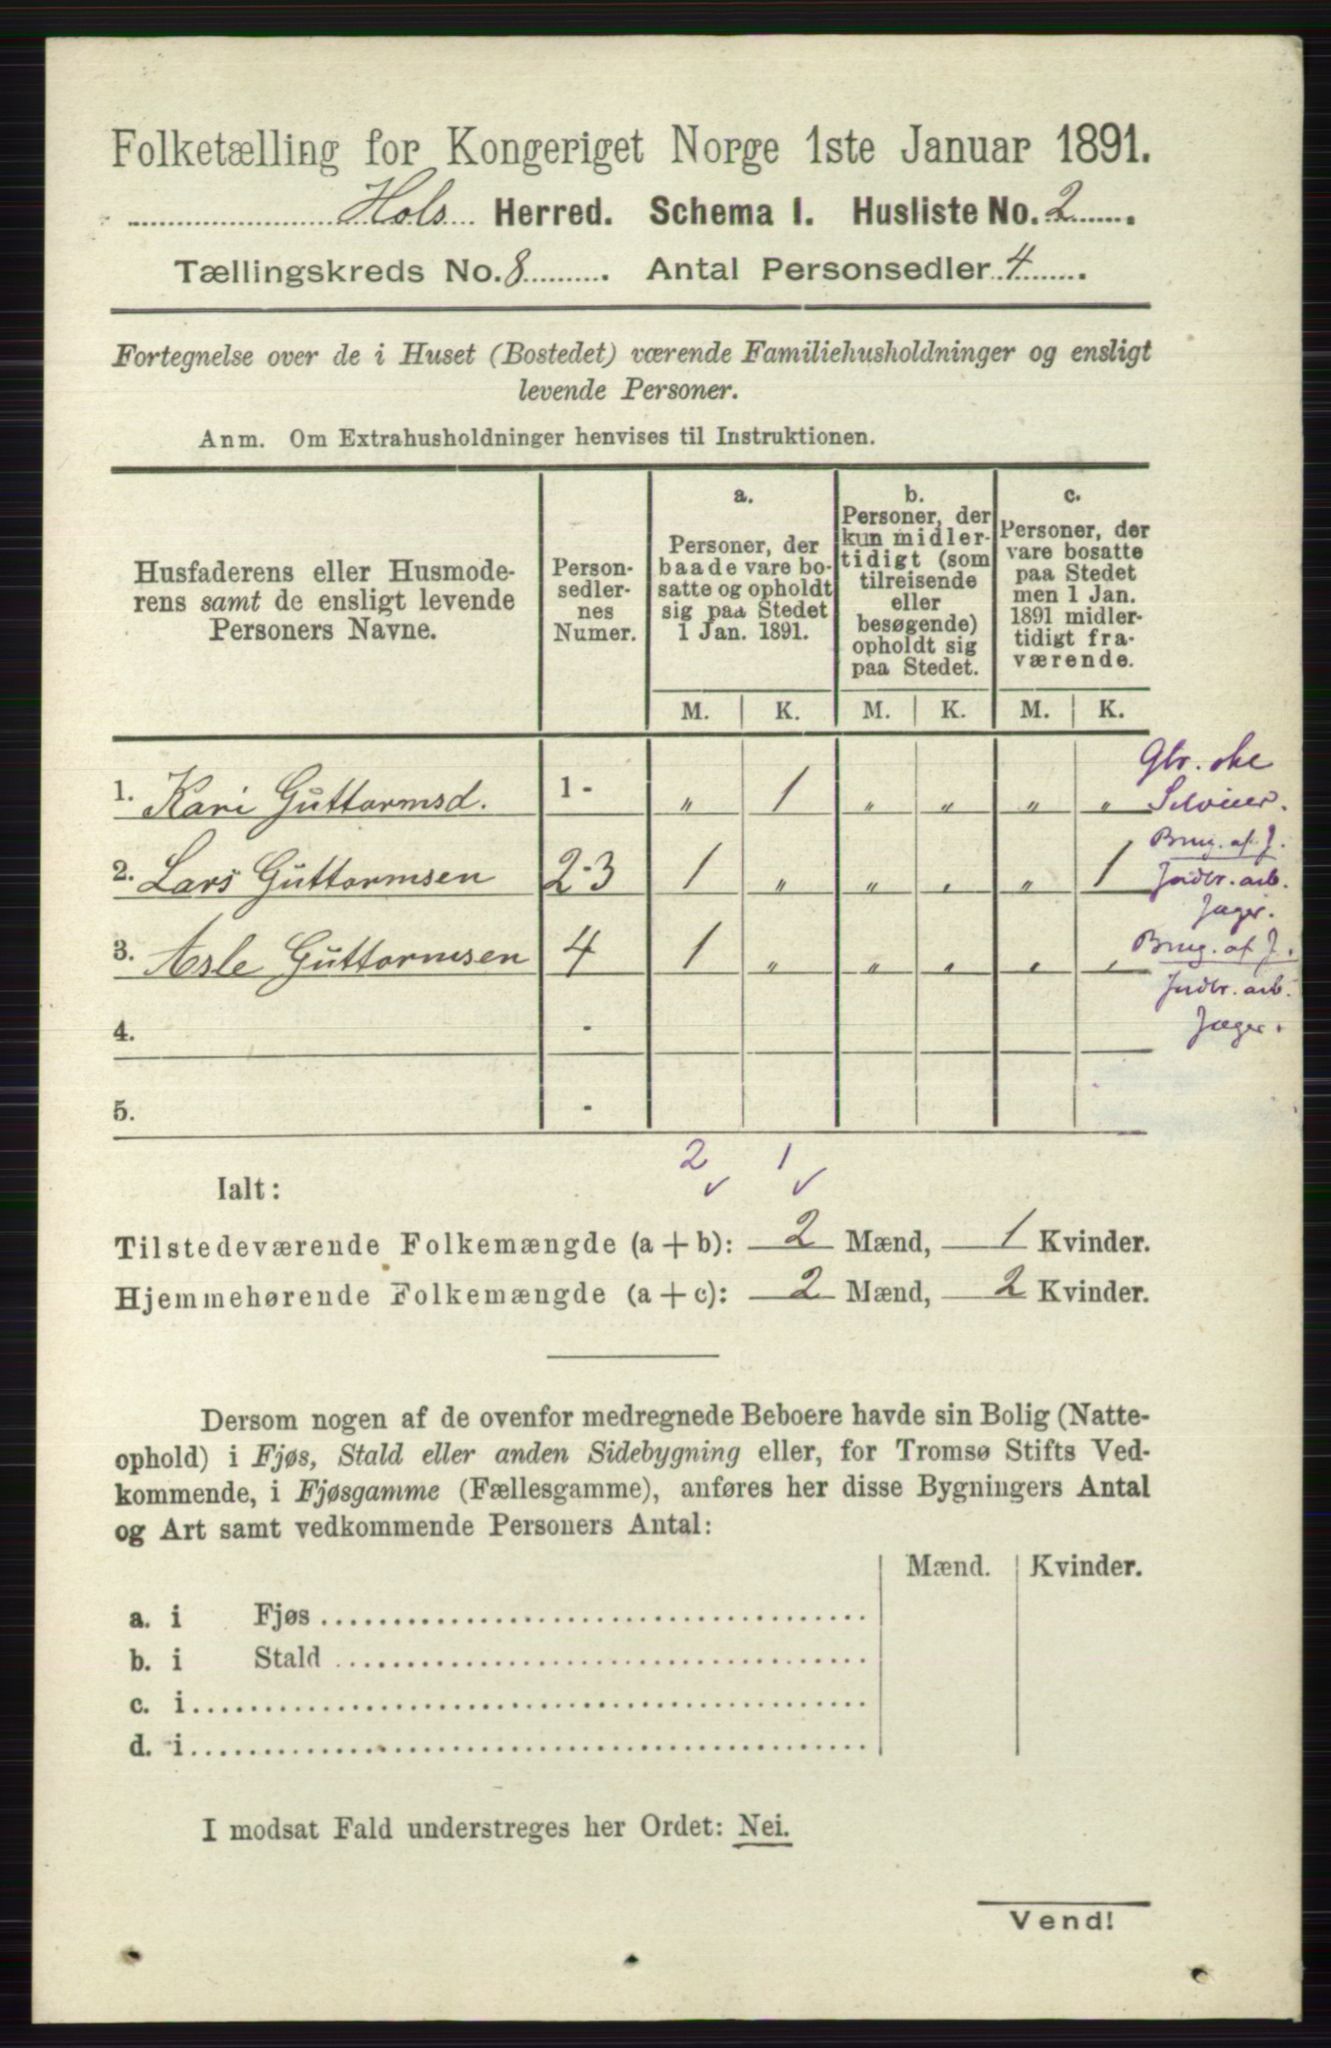 Folketælling for Kongeriget Norge 1ste Januar 1891.
Hols Herred. Schema I. Husliste No. 2
Tællingskreds No. 8. Antal Personsedler 4.
Fortegnelse over de i Huset (Bostedet) værende Familiehusholdninger og ensligt
levende Personer.
Anm. Om Extrahusholdninger henvises til Instruktionen.
Husfaderens eller Husmode-
rens samt de ensligt levende
Personers Navne.
Person-
sedler-
nes
Numer.
a.
Personer, der
baade vare bo-
satte og opholdt
sig paa Stedet
1 Jan. 1891.
b.
Personer, der
kun midler-
tidigt (som
tilreisende
eller
besøgende)
opholdt sig
paa Stedet.
c.
Personer, der
vare bosatte
paa Stedet
men 1 Jan.
1891 midler-
tidigt fra-
værende.
M. K. M. K. M. K.
1. Kari Guttormsd. 1 - „ 1 „ „ „ „
Gbr.
2. Lars Guttormsen 2-3 1 „ „ „ „ 1
Brug. af J.
Indbr. arb.
Jæger.
3. Asle Guttormsen 4 1 „ „ „ „ „
Brug. af J.
Indbr. arb.
Jæger.
4. -
5. -
2 1
Ialt:
Tilstedeværende Folkemængde (a + b): 2 Mænd, 1 Kvinder.
Hjemmehørende Folkemængde (a + c): 2 Mænd, 2 Kvinder.
Dersom nogen af de ovenfor medregnede Beboere havde sin Bolig (Natte-
ophold) i Fjøs, Stald eller anden Sidebygning eller, for Tromsø Stifts Ved-
kommende, i Fjøsgamme (Fællesgamme), anføres her disse Bygningers Antal
og Art samt vedkommende Personers Antal:
Mænd. Kvinder.
a. i Fjøs
b. i Stald
c. i
d. i
I modsat Fald understreges her Ordet: Nei.
Vend!